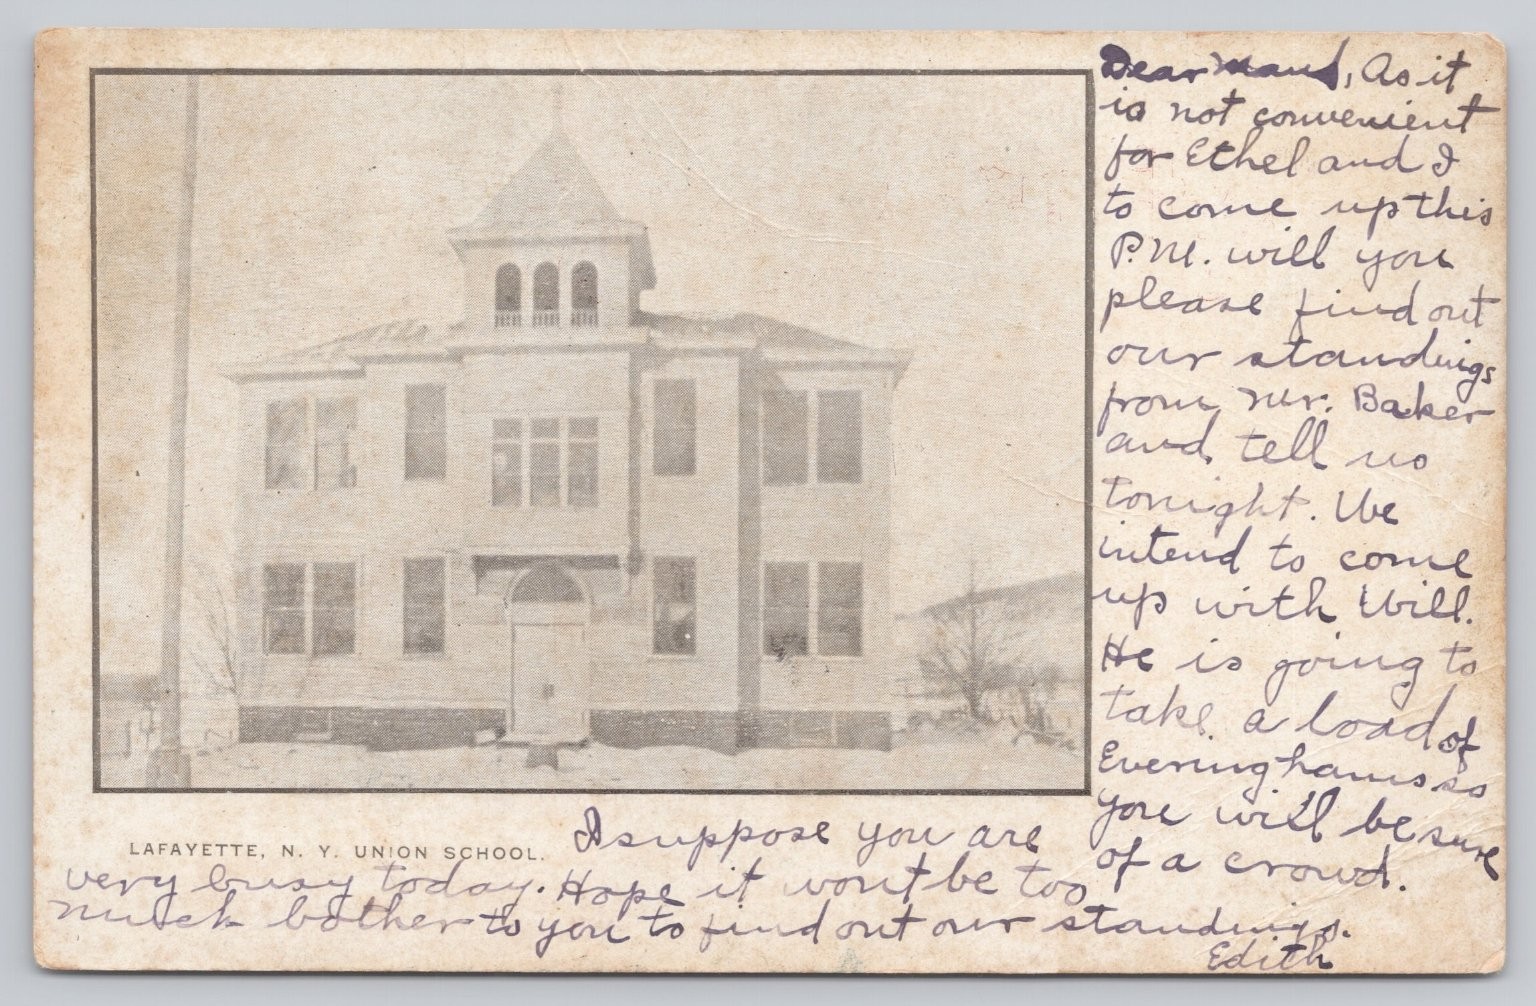 Dear Maud, As it
is not convenient
for Ethel and I
to come up this
P.M. will you
please find out
our standings
from Mr. Baker
and tell us
tonight. We
intend to come
up with Will.
He is going to
take a load of
Everinghams so
you will be sure
of a crowd.
LAFAYETTE, N. Y. UNION SCHOOL.
I suppose you are
very busy today. Hope it wont be too
much bother to you to find out our standings.
Edith